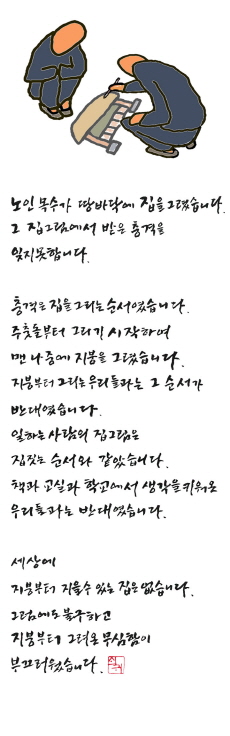 노인 목수가 땅바닥에 집을 그렸습니다.
그 집그림에서 받은 충격을
잊지 못합니다.
충격은 집을 그리는 순서였습니다.
주춧돌부터 그리기 시작하여
맨 나중에 지붕을 그렸습니다.
지붕부터 그리는 우리들과는 그 순서가
반대였습니다.
일하는 사람의 집그림은
집짓는 순서와 같았습니다.
책과 교실과 학교에서 생각을 키워온
우리들과는 반대였습니다.
세상에
지붕부터 지을 수 있는 집은 없습니다.
그럼에도 불구하고
지붕부터 그려온 무심함이
부끄러웠습니다.